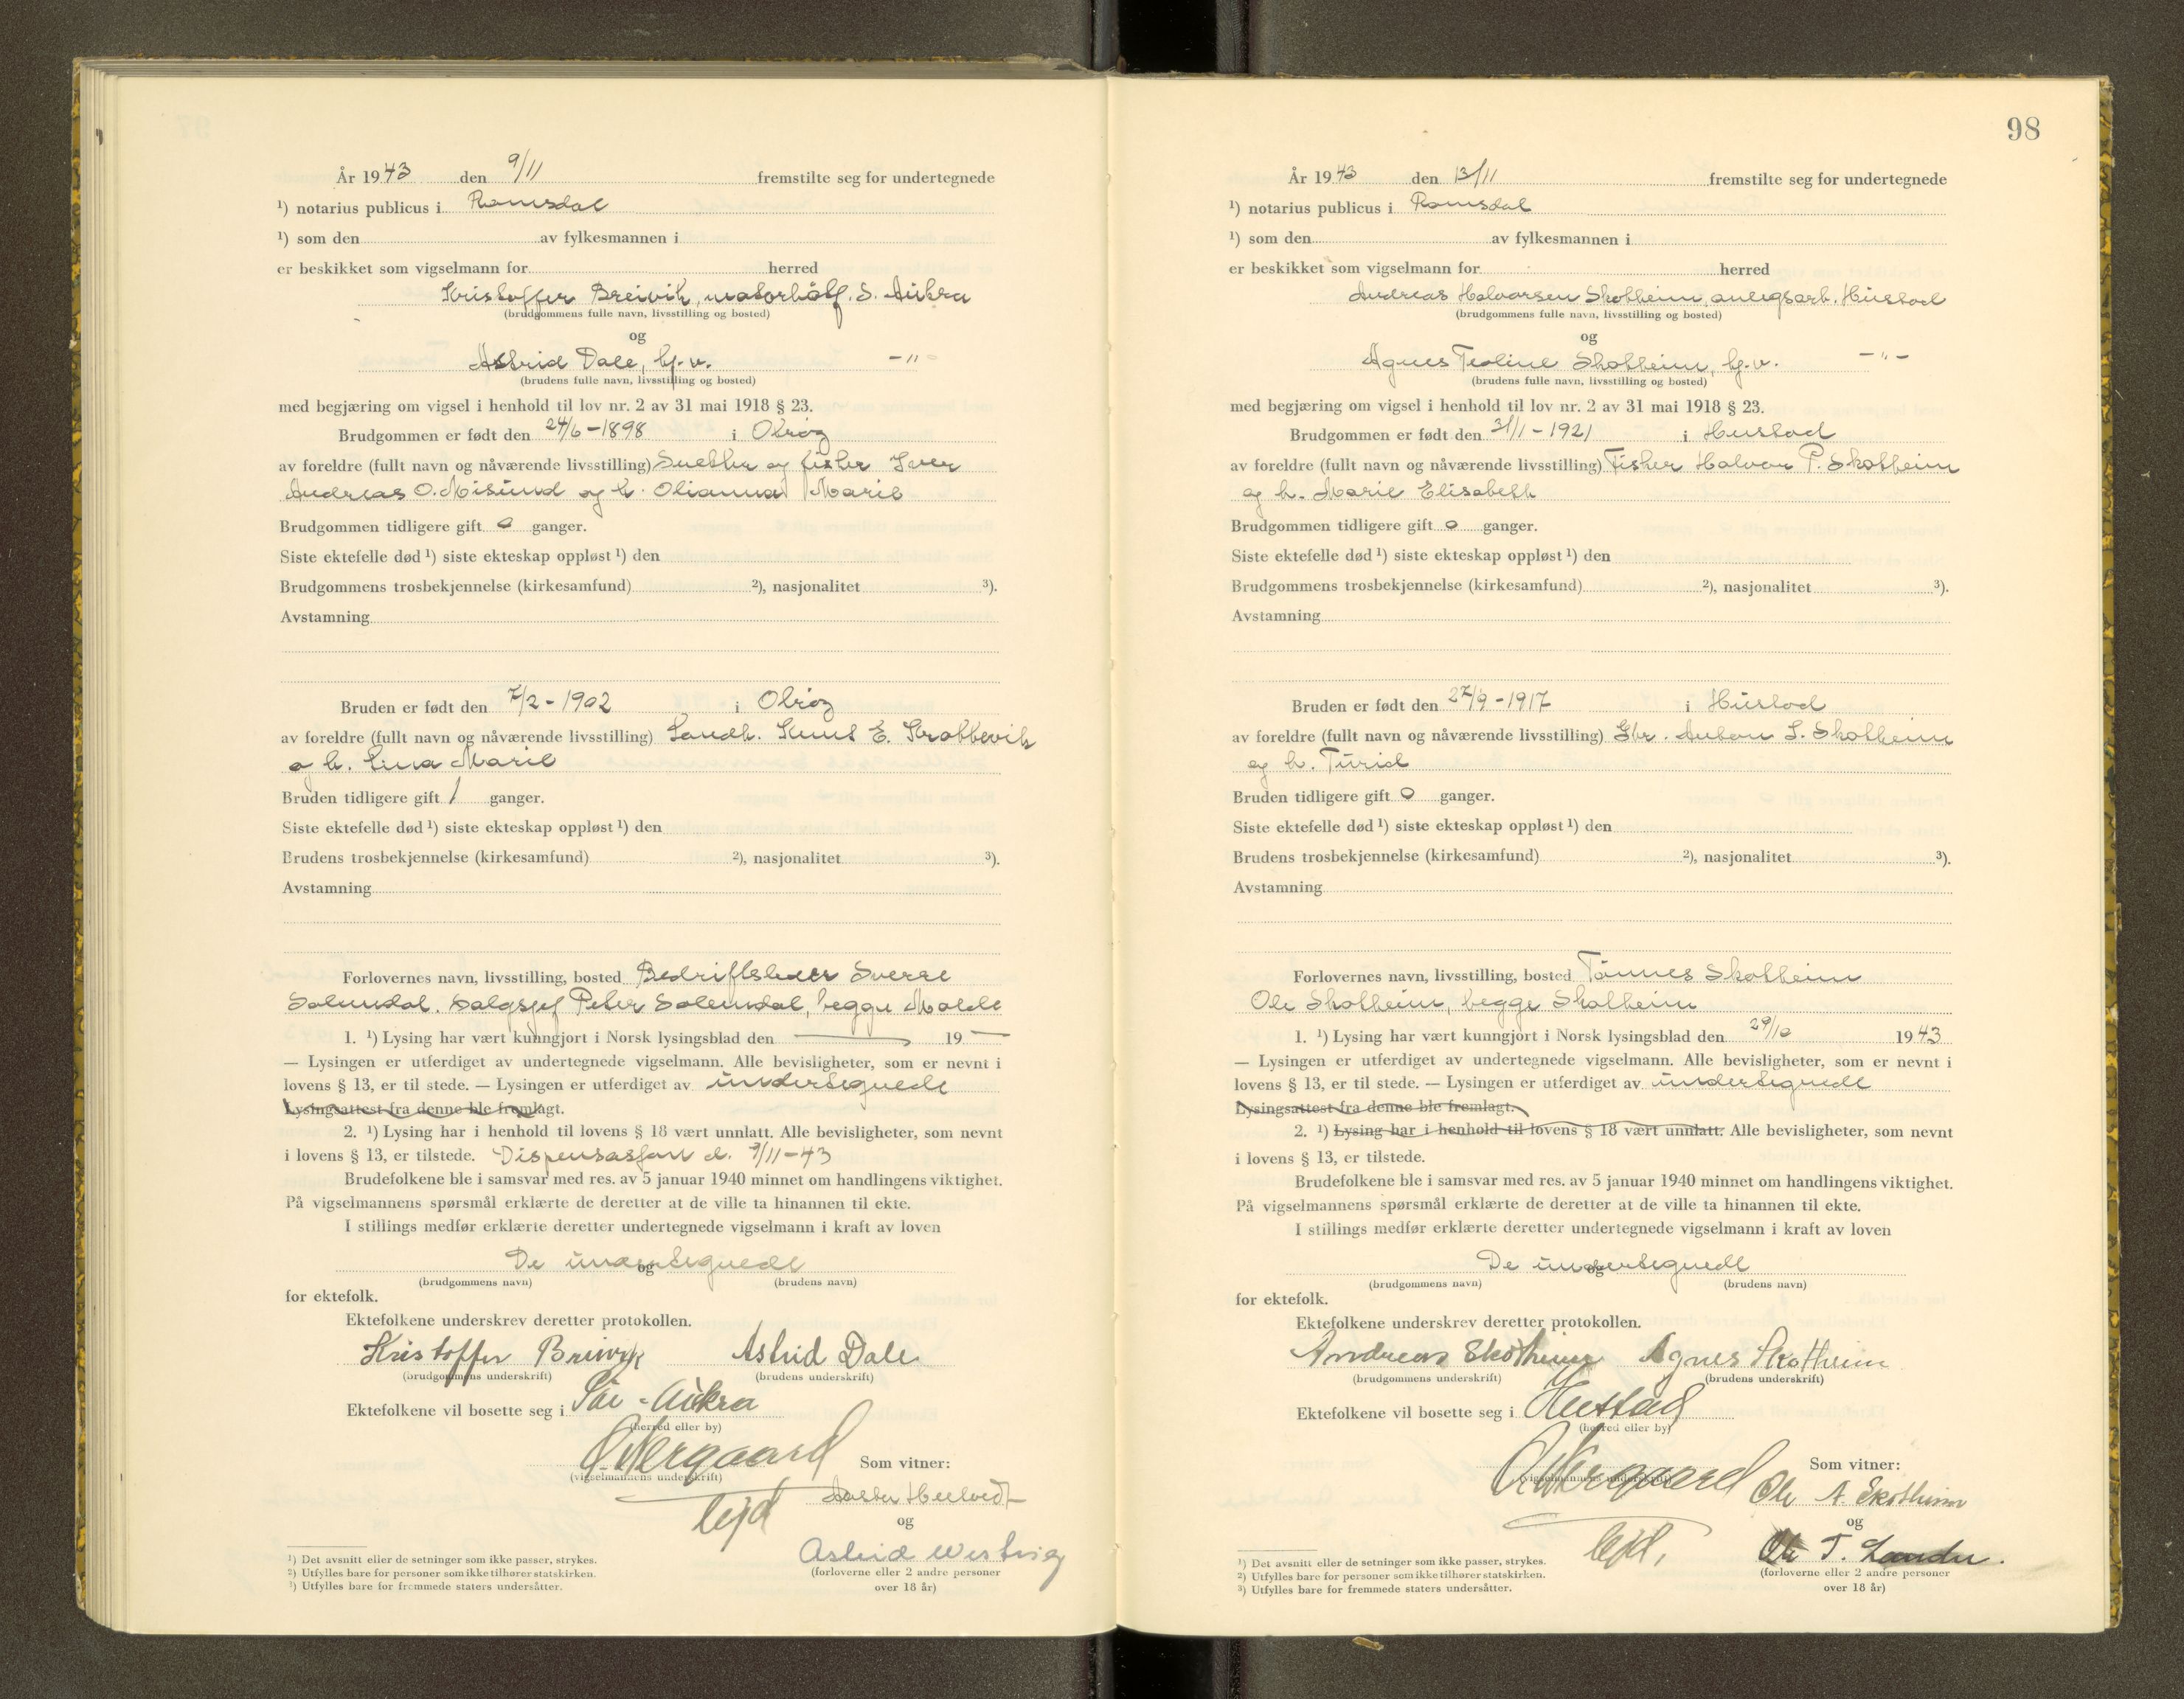 År 1943 den 9/11 fremstilte seg for undertegnede
¹) notarius publicus i Romsdal
¹) som den av fylkesmannen i
er beskikket som vigselmann for herred
Kristoffer Breivik, S. Aukra
(brudgommens fulle navn, livsstilling og bosted)
og
Astrid Dale, hj.v. -"-
(brudens fulle navn, livsstilling og bosted)
med begjæring om vigsel i henhold til lov nr. 2 av 31 mai 1918 § 23.
Brudgommen er født den 24/6-1898 i Otrøy
av foreldre (fullt navn og nåværende livsstilling) Snekker og fisker Iver
Andreas O. Misund og h. Olianna Marie
Brudgommen tidligere gift 0 ganger.
Siste ektefelle død ¹) siste ekteskap oppløst ¹) den
Brudgommens trosbekjennelse (kirkesamfund) ²), nasjonalitet ³).
Avstamning
Bruden er født den 7/2-1902 i Otrøy
av foreldre (fullt navn og nåværende livsstilling) Landh. Knut E. Krakkevik
o h. Lina Marie
Bruden tidligere gift 1 ganger.
Siste ektefelle død ¹) siste ekteskap oppløst ¹) den
Brudens trosbekjennelse (kirkesamfund) ²), nasjonalitet ³).
Avstamning
Forlovernes navn, livsstilling, bosted Bedriftsleder Sverre
Solemdal. Salgssjef Peter Solemdal, begge Molde
1. ¹) Lysing har vært kunngjort i Norsk lysingsblad den — 19 —
— Lysingen er utferdiget av undertegnede vigselmann. Alle bevisligheter, som er nevnt i
lovens § 13, er til stede. — Lysingen er utferdiget av undertegnede
Lysingsattest fra denne ble fremlagt.
2. ¹) Lysing har i henhold til lovens § 18 vært unnlatt. Alle bevisligheter, som nevnt
i lovens § 13, er tilstede. Dispensasjon d. 9/11-43
Brudefolkene ble i samsvar med res. av 5 januar 1940 minnet om handlingens viktighet.
På vigselmannens spørsmål erklærte de deretter at de ville ta hinannen til ekte.
I stillings medfør erklærte deretter undertegnede vigselmann i kraft av loven
De undertegnede
og
(brudgommens navn) (brudens navn)
for ektefolk.
Ektefolkene underskrev deretter protokollen.
Kristoffer Breivik Astrid Dale
(brudgommens underskrift) (brudens underskrift)
Ektefolkene vil bosette seg i Sør-Aukra
(herred eller by)
(vigselmannens underskrift) Som vitner:
og
Astrid
(forloverne eller 2 andre personer
over 18 år)
¹) Det avsnitt eller de setninger som ikke passer, strykes.
²) Utfylles bare for personer som ikke tilhører statskirken.
³) Utfylles bare for fremmede staters undersåtter.
98
År 1943 den 13/11 fremstilte seg for undertegnede
¹) notarius publicus i Romsdal
¹) som den av fylkesmannen i
er beskikket som vigselmann for herred
Andreas Halvorsen Skotheim, anlegsarb. Hustad
(brudgommens fulle navn, livsstilling og bosted)
og
Agnes Teoline Skotheim, hj.v. -"-
(brudens fulle navn, livsstilling og bosted)
med begjæring om vigsel i henhold til lov nr. 2 av 31 mai 1918 § 23.
Brudgommen er født den 31/1-1921 i Hustad
av foreldre (fullt navn og nåværende livsstilling) Fisker Halvor P. Skotheim
og h. Marie Elisabeth
Brudgommen tidligere gift 0 ganger.
Siste ektefelle død ¹) siste ekteskap oppløst ¹) den
Brudgommens trosbekjennelse (kirkesamfund) ²), nasjonalitet ³).
Avstamning
Bruden er født den 27/9-1917 i Hustad
av foreldre (fullt navn og nåværende livsstilling) Gbr. Anton L. Skotheim
og h. Turid
Bruden tidligere gift 0 ganger.
Siste ektefelle død ¹) siste ekteskap oppløst ¹) den
Brudens trosbekjennelse (kirkesamfund) ²), nasjonalitet ³).
Avstamning
Forlovernes navn, livsstilling, bosted Tønnes Skotheim
Ole Skotheim, begge Skotheim
1. ¹) Lysing har vært kunngjort i Norsk lysingsblad den 29/10 1943
— Lysingen er utferdiget av undertegnede vigselmann. Alle bevisligheter, som er nevnt i
lovens § 13, er til stede. — Lysingen er utferdiget av undertegnede
Lysingsattest fra denne ble fremlagt.
2. ¹) Lysing har i henhold til lovens § 18 vært unnlatt. Alle bevisligheter, som nevnt
i lovens § 13, er tilstede.
Brudefolkene ble i samsvar med res. av 5 januar 1940 minnet om handlingens viktighet.
På vigselmannens spørsmål erklærte de deretter at de ville ta hinannen til ekte.
I stillings medfør erklærte deretter undertegnede vigselmann i kraft av loven
De undertegnede
og
(brudgommens navn) (brudens navn)
for ektefolk.
Ektefolkene underskrev deretter protokollen.
Andreas Skotheim Agnes Skotheim
(brudgommens underskrift) (brudens underskrift)
Ektefolkene vil bosette seg i Hustad
(herred eller by)
(vigselmannens underskrift) Som vitner:
Ole A. Skotheim
og
Ole T.
(forloverne eller 2 andre personer
over 18 år)
¹) Det avsnitt eller de setninger som ikke passer, strykes.
²) Utfylles bare for personer som ikke tilhører statskirken.
³) Utfylles bare for fremmede staters undersåtter.